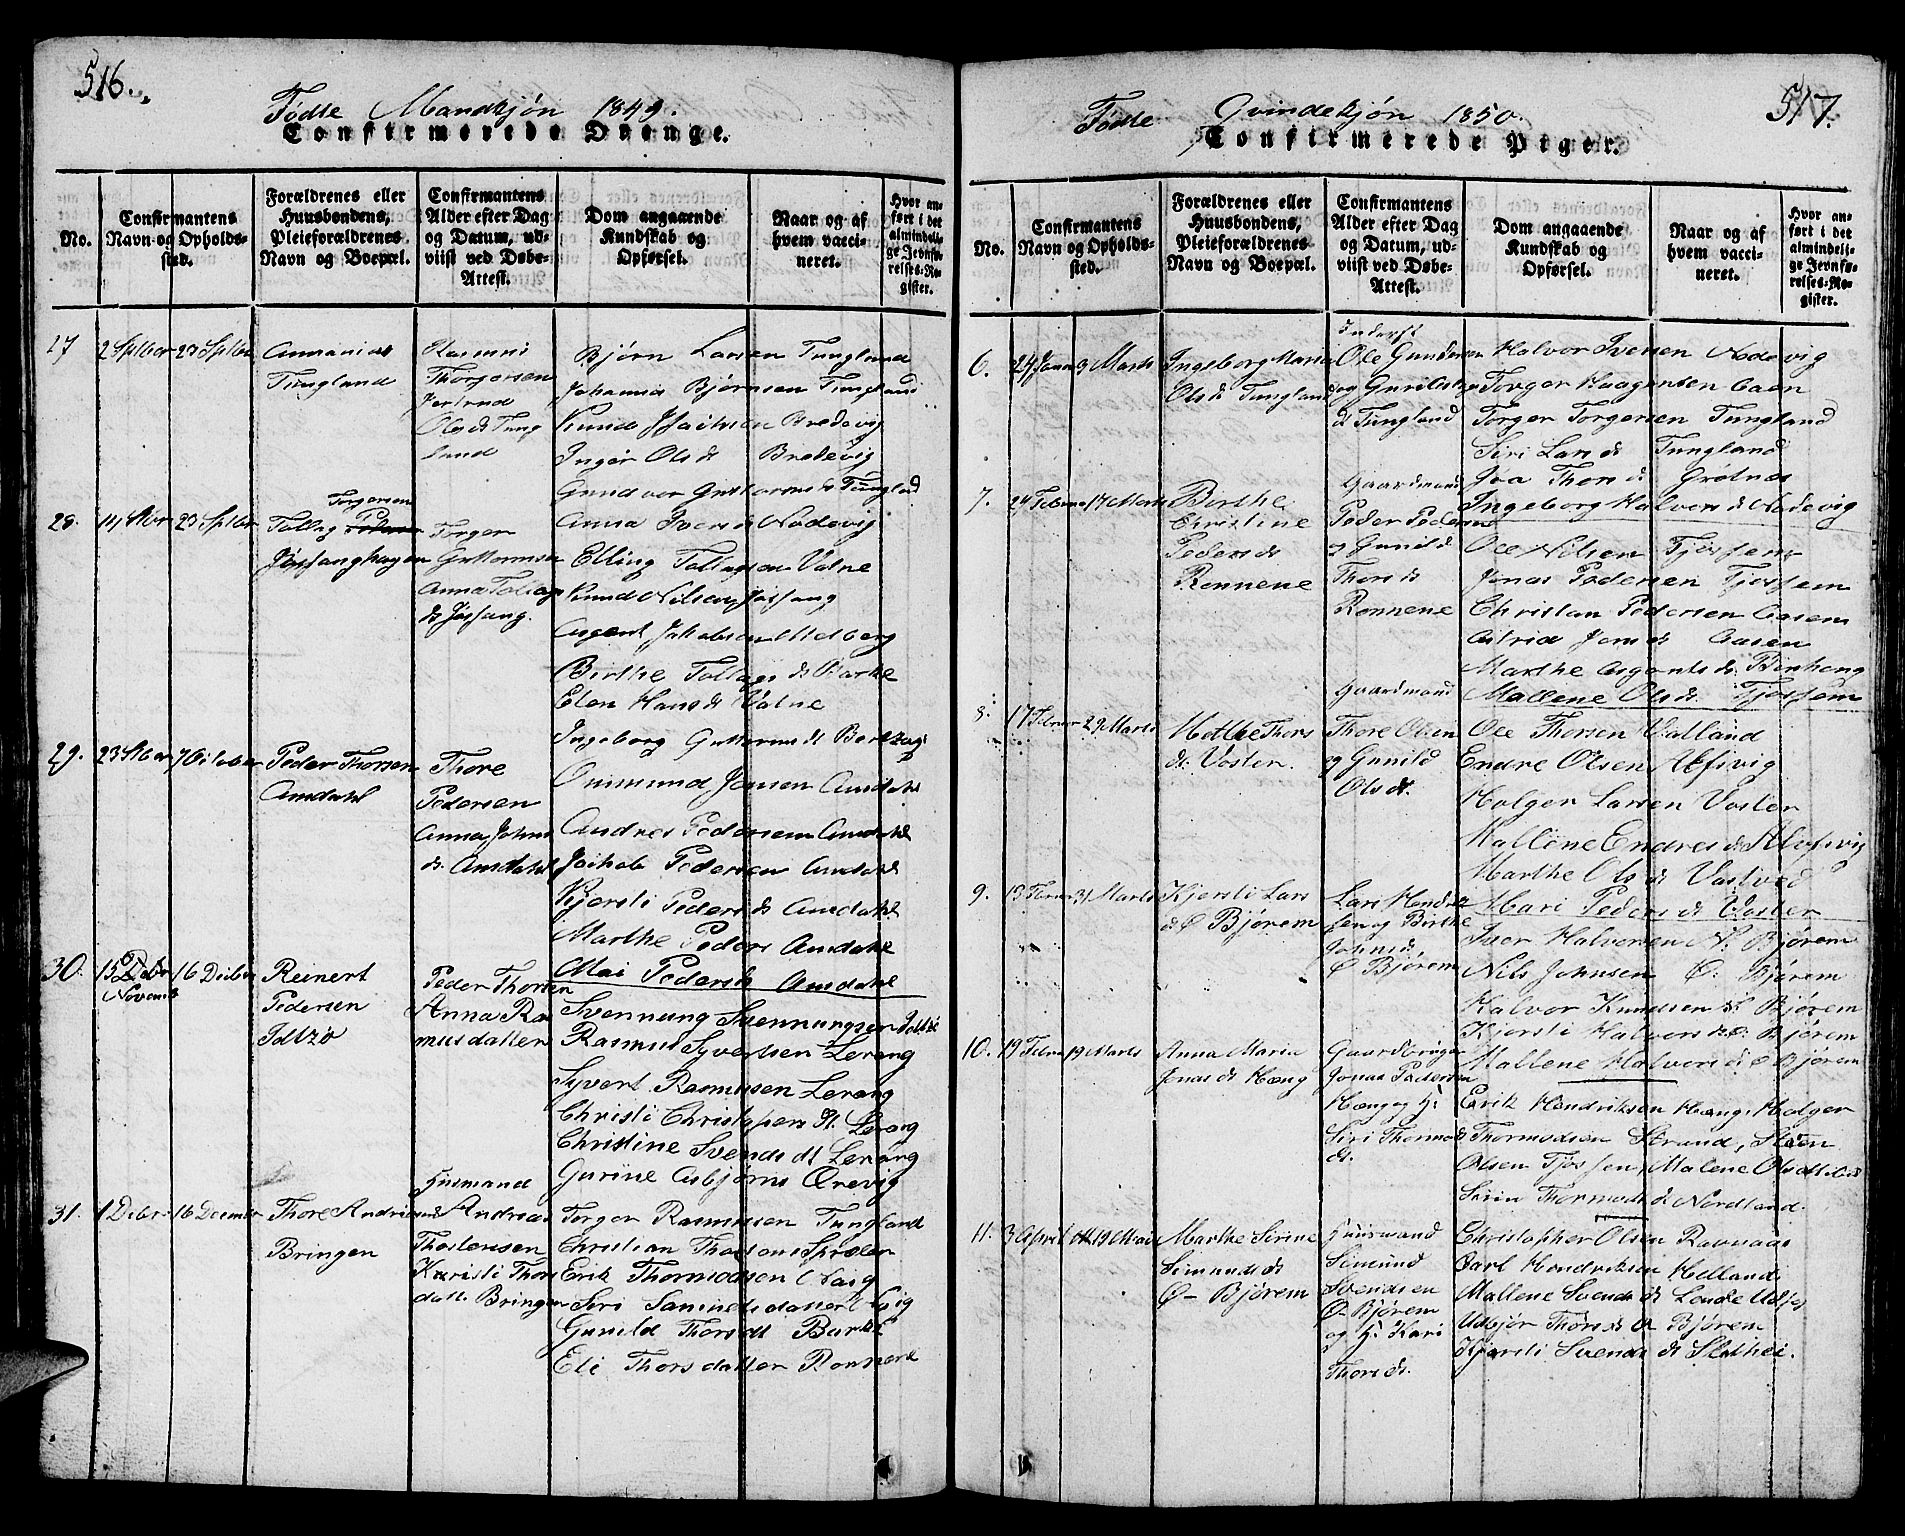 516.
Fødte Mandkjøn 1849.
Confirmerede Drenge.
No.
Confirmantens Navn og Opholds-sted.
Forældrenes eller Huusbondens, Pleieforældrenes Navn og Boepæl.
Confirmantens Alder efter Dag og Datum, ud-viist ved Døbe-Attest.
Dom angaaende Kundskab og Opførsel.
Naar og af hvem vacci-neret.
Hvor an-ført i det almindeli-ge Jevnfø-relses-Re-gister.
27 2 Septbr 23 Septbr
Ananias
Tungland
Rasmus
Thorgersen
Jertrud
Ols d Tung
land
Bjørn Larsen Tungland
Johannes Bjørnsen Tungland
Knud Bredevig
Inger Ols d Bredevig
Gundvor Guttorms d Tungland
28. 23 Septbr
Torgersen
Tollag
Jøssanghagen
Torger
Guttormsen
Anna Tollags
d Jøssang.
Anna Ivers d Nodevig
Elling Tollagsen Valne
Knud Nilsen Jøssang
Asgout Jakobsen Adberg
Birthe Tollags d Barke
Elen Hans d Valne
Ingeborg Guttorms d
29. 7 October
Peder Thorsen
Amdahl
Thore
Pedersen
Anna Johns
d. Amdahl
Omund Jonsen Amdahl
Andres Pedersen Amdahl
Jakob Pedersen Amdahl
Kjersti Peders d Amdahl
Marthe Peders Amdahl
Mai Peders d Amdahl
30. 15 Novemb 16 Decbr
Reinert
Pedersen
Toltzø
Peder Thorsen
Anna Ras
musdatter
Svennung Svennungsen
Rasmus Syvertsen Lerang
Syvert Rasmusen Lerang
Christi Christophers d. Lerang
Christine Svends dt Lerang
Gurine Asbjørns Ørevig
31. 1 Decbr 16 Decmbr
Thore Andreas
Bringen
Husmand
Andreas
Thostensen
Karisti Thors
datt. Bringen
Torger Rasmusen Tungland
Christian Thorsen
Erik Thormodsen Naig
Siri Samuelsdatter Naig
Gunild Thorsdt Barke
Eli Thorsdatter Rønnene
517.
Fødte Qvindekjøn 1850.
Confirmerede Piger.
No.
Confirmantens Navn og Opholds-sted.
Forældrenes eller Huusbondens, Pleieforældrenes Navn og Boepæl.
Confirmantens Alder efter Dag og Datum, ud-viist ved Døbe-Attest.
Dom angaaende Kundskab og Opførsel.
Naar og af hvem vacci-neret.
Hvor an-ført i det almindeli-ge Jevnfø-relses-Re-gister.
6. 24 Janr 3 Marts
Ingeborg Maria
Ols d Tungland
Inderst
Ole Gundersen
og Gunild
d Tungland
Halvor Iversen Nodevig
Torger Haagensen Aasen
Torger Torgersen Tungland
Siri Lars d Tungland
Joa Thors d Grotnes
Ingeborg Halvors d Nodevig
7. 24 Febru 17 Marts
Berthe
Christine
Peders d
Rønnene
Gaardmand
Peder Pedersen
og Gunild
Thors d
Rønnene
Ole Nilsen Tjøssem
Jonas Pedersen Tjøssem
Christan Pedersen Aasen
Astrid Jons d Aasen
Marthe Asgouts d
Mallene Ols d. Tjøssem
8. 17 Febru 29 Marts
Methe Thors
d. Voster.
Gaardmand
Thore Olsen
og Gunild
Ols d.
Ole Thorsen Valland
Endre Olsen Alfsvig
Holger Larsen Voster
Mallene Endres d Alfsvig
Marthe Ols d Vastved
Mari Peders d Voster
9. 13 Febru 31 Marts
Kjersti Lars
d Ø Bjørem
Lars Hendrik
sen og Birthe
Johns d.
Ø Bjørem
Iver Halvorsen N. Bjørem
Nils Johnsen Ø. Bjørem
Halvor Knudsen Ø. Bjørem
Kjersti Halvors d Ø. Bjørem
Mallene Halvors d Ø Bjørem
10. 19 Febru 19 Marts
Anna Maria
Jonas d Hæng
Gaardbruger
Jonas Pedersen
Hæng og H:
Siri Thormods
d.
Erik Hendriksen Hæng, Holger
Thormodsen Strand, Steen
Olsen Tjøssem, Malene Olsdt ibid
Siren Thormods d Nordland.
11. 3 April 19 Mai
Marthe Serine
Simunds d
Ø- Bjørem
Huusmand
Simund
Svendsen
Ø- Bjørem
og H: Kari
Thors d.
Christopher Olsen Ravnaas
Carl Hendriksen Helland
Mallene Svends d Lende
Udbjør Thors d Ø Bjørem
Kjersti Svends d Slethei.